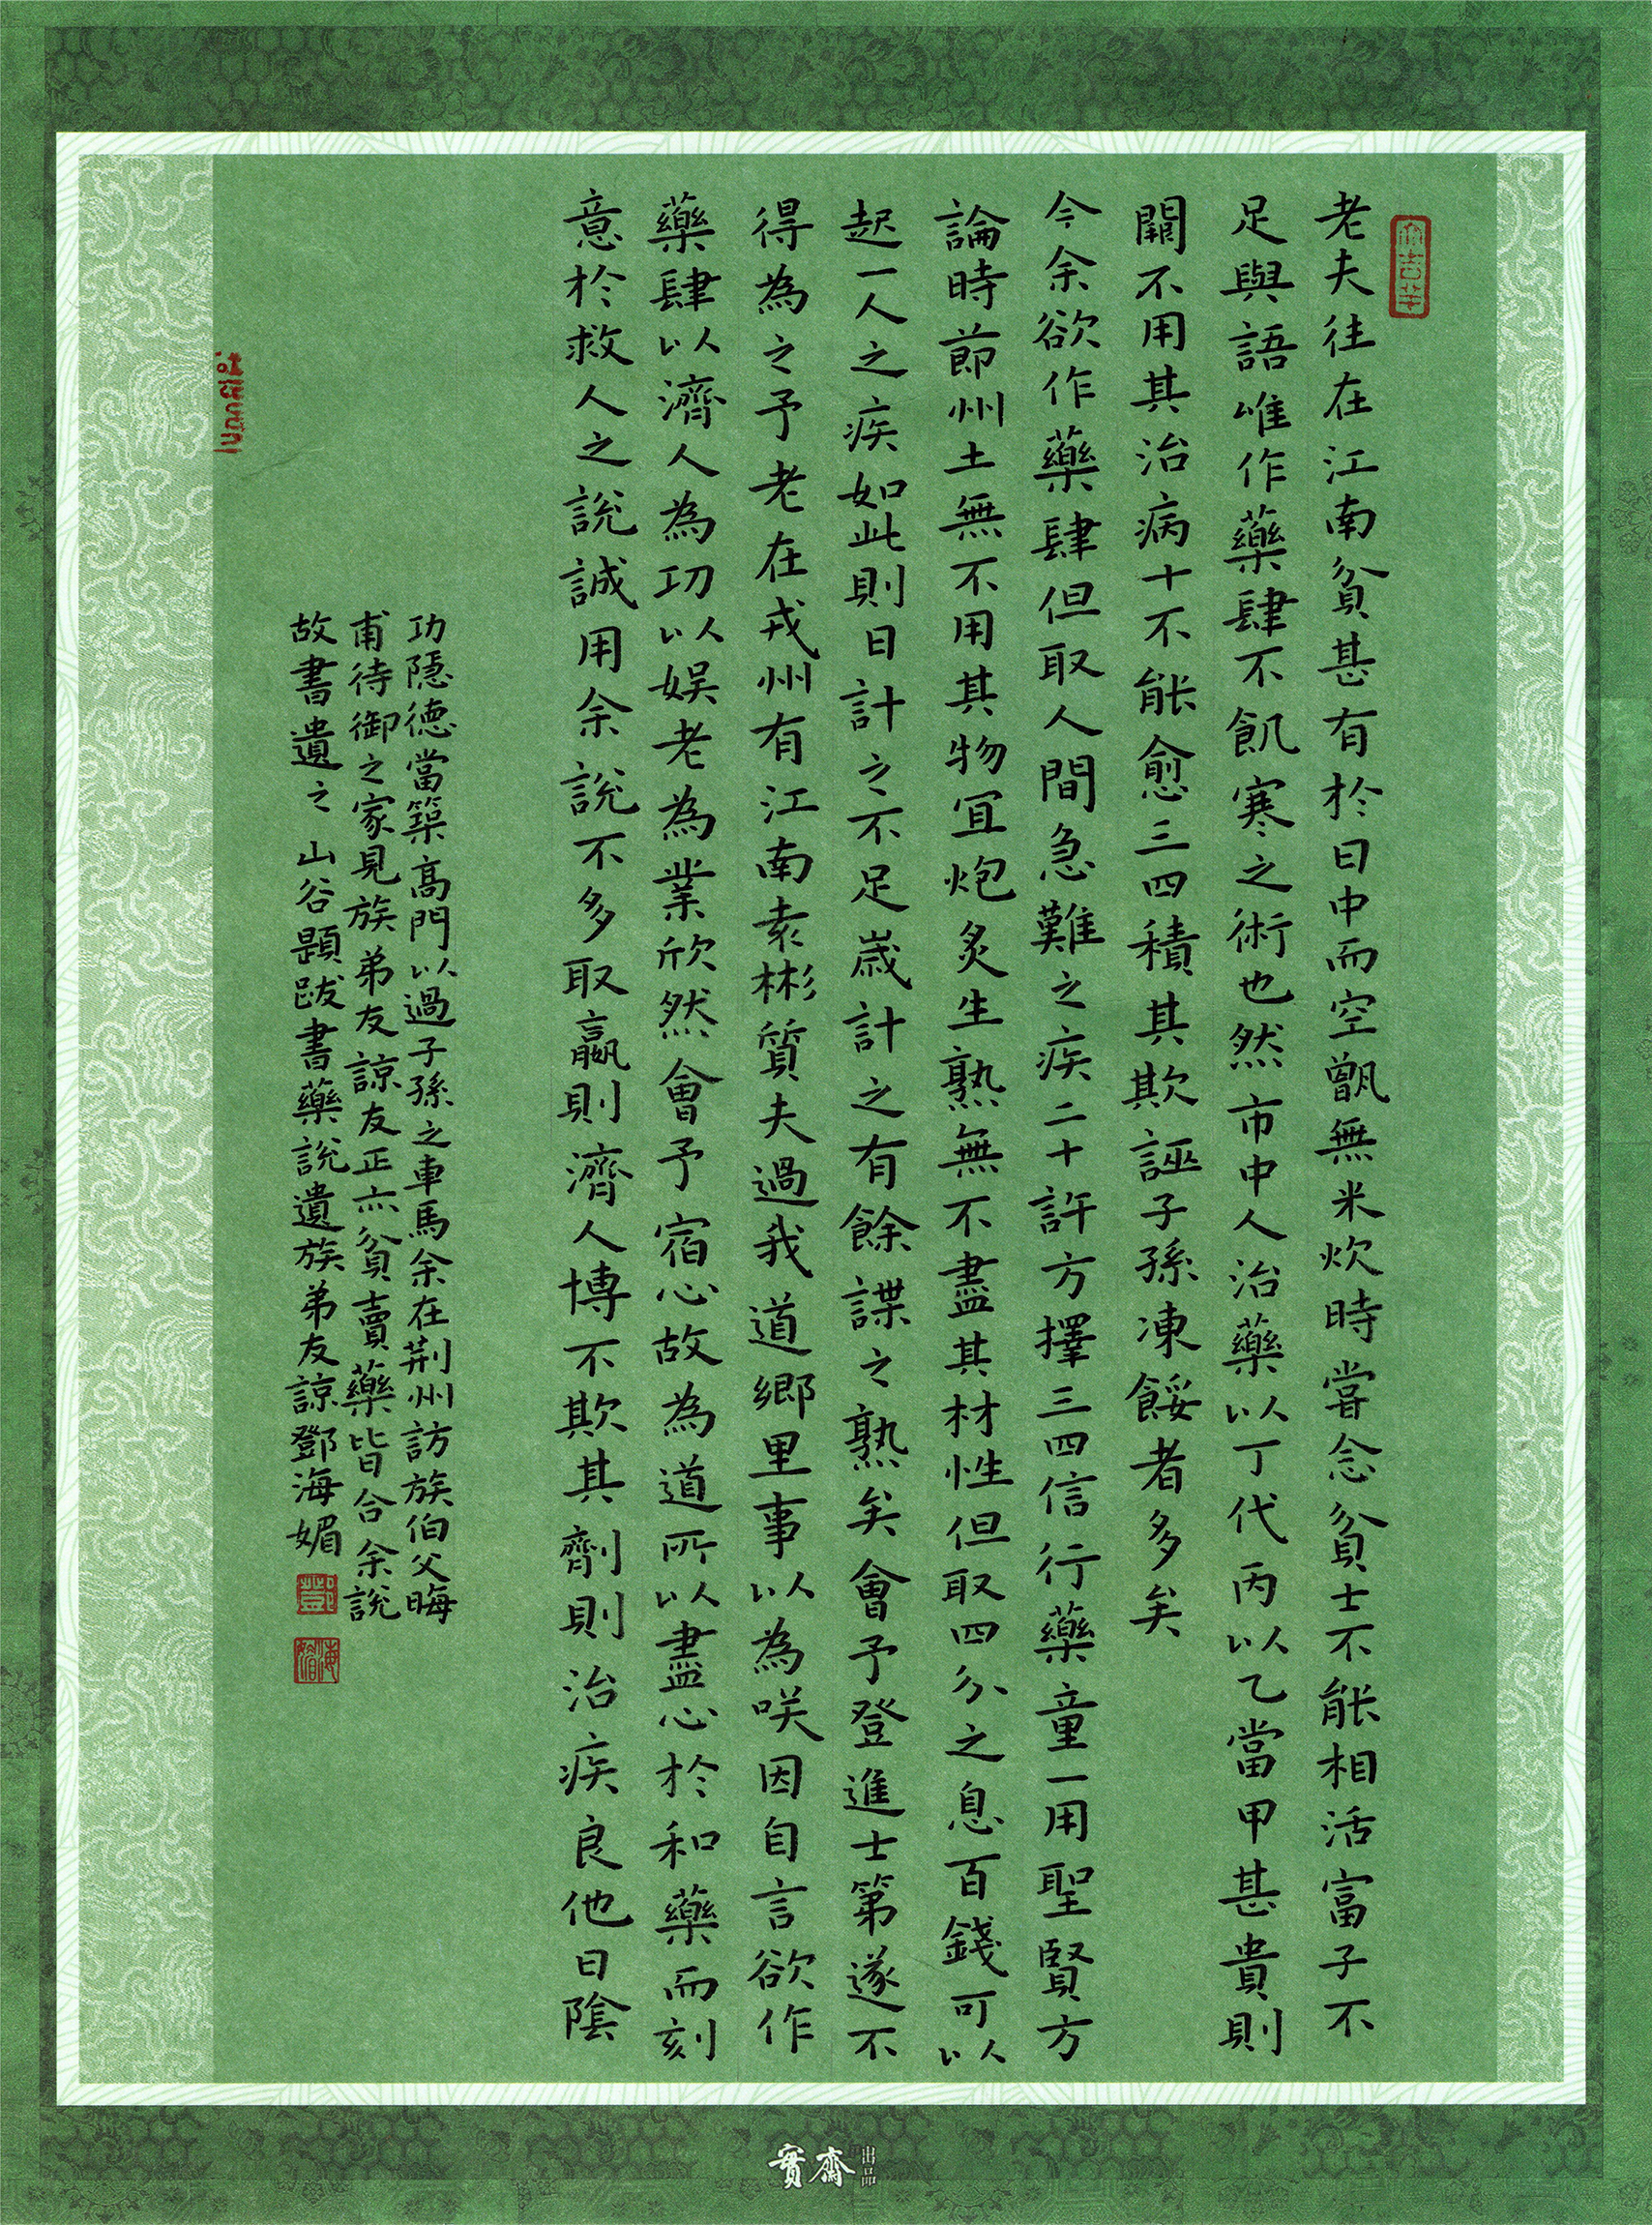 老夫往在江南貧甚有於日中而空甑無米炊時嘗念貧士不能相活富子不
足與語唯作藥肆不飢寒之術也然市中人治藥以丁代丙以乙當甲甚貴則
闕不用其治病十不能愈三四積其欺誣子孫凍餒者多矣
今余欲作藥肆但取人間急難之疾二十許方擇三四信行藥童一用聖賢方
論時節州土無不用其物宜炮炙生熟無不盡其材性但取四分之息百錢可以
起一人之疾如此則日計之不足歲計之有餘諜之熟矣會予登進士第遂不
得為之予老在戎州有江南袁彬質夫過我道鄉里事以為咲因自言欲作
藥肆以濟人為功以娛老為業欣然會予宿心故為道所以盡心於和藥而刻
意於救人之說誠用余說不多取贏則濟人博不欺其劑則治疾良他日陰
功隱德當築高門以過子孫之車馬余在荆州訪族伯父晦
甫待御之家見族弟友諒友正亦貧賣藥皆合余說
故書遺之 山谷題跋書藥說遺族弟友諒鄧海媚
鄧
海媚
寶齋
出品